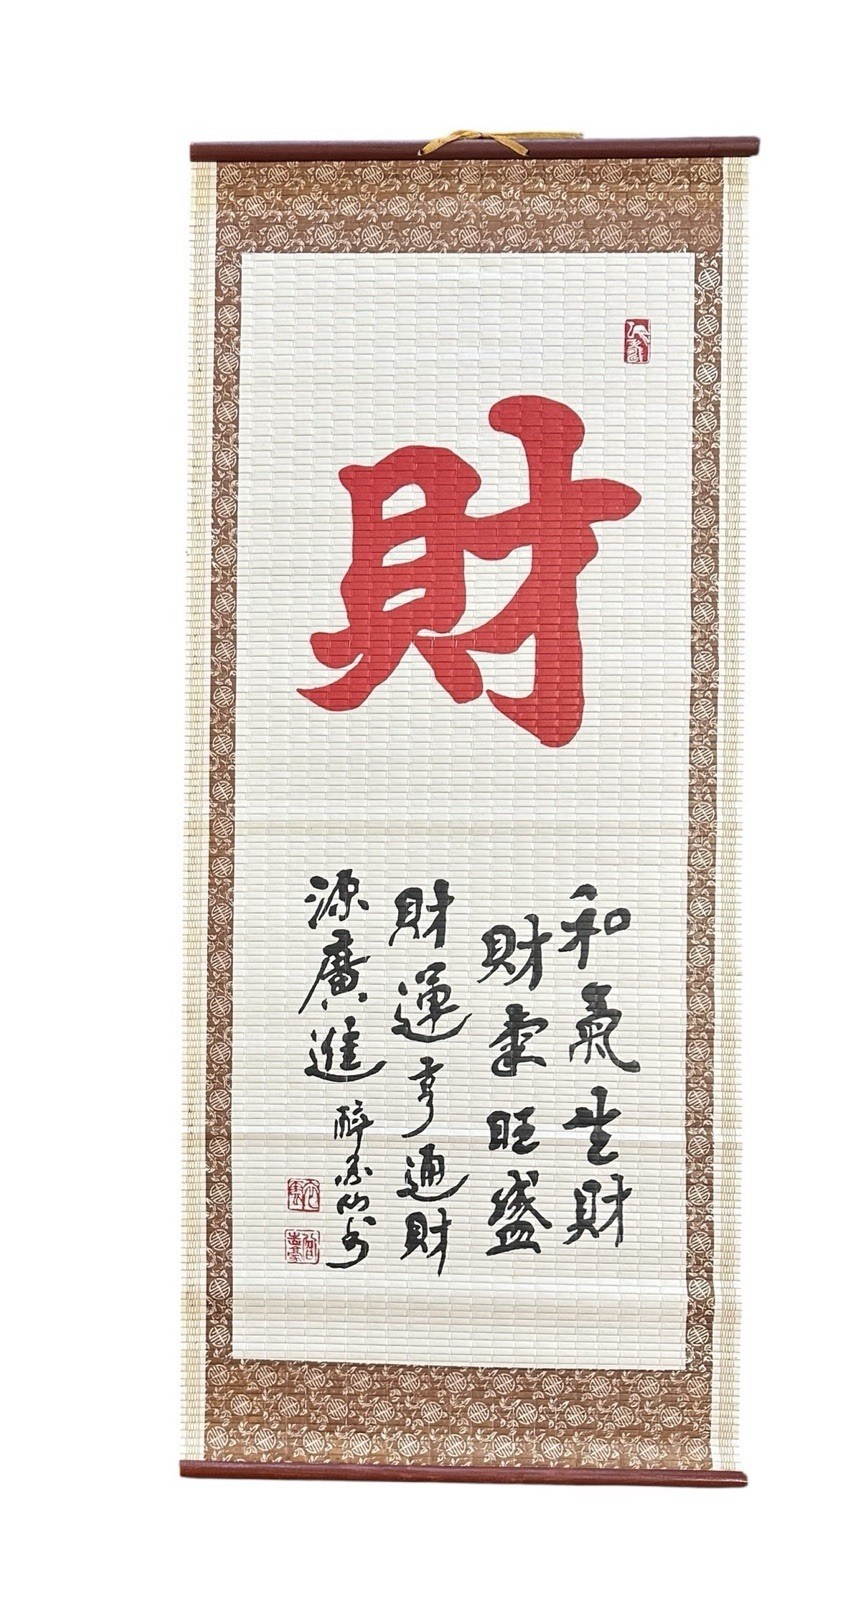 財
和氣生財
財氣旺盛
財運亨通財
源廣進